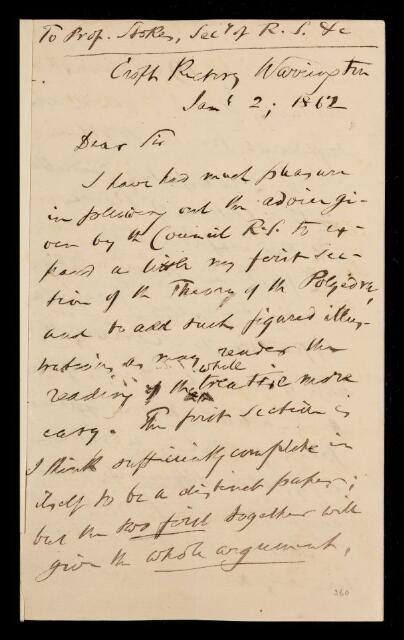 To Prof. Stokes, Secy of R. S. &c
Croft Rectory Warrington
Jany 2, 1862
Dear Sir
I have had much pleasure
in following out the advice gi-
ven by the Council R.S. to ex-
pand a little my first sec-
tion of the Theory of the Polyedra,
and to add such figured illus-
trations as may render the
while
reading of the treatise more
easy. The first section is
I think sufficiently complete in
itself to be a distinct paper;
but the two first together will
give the whole argument,
360